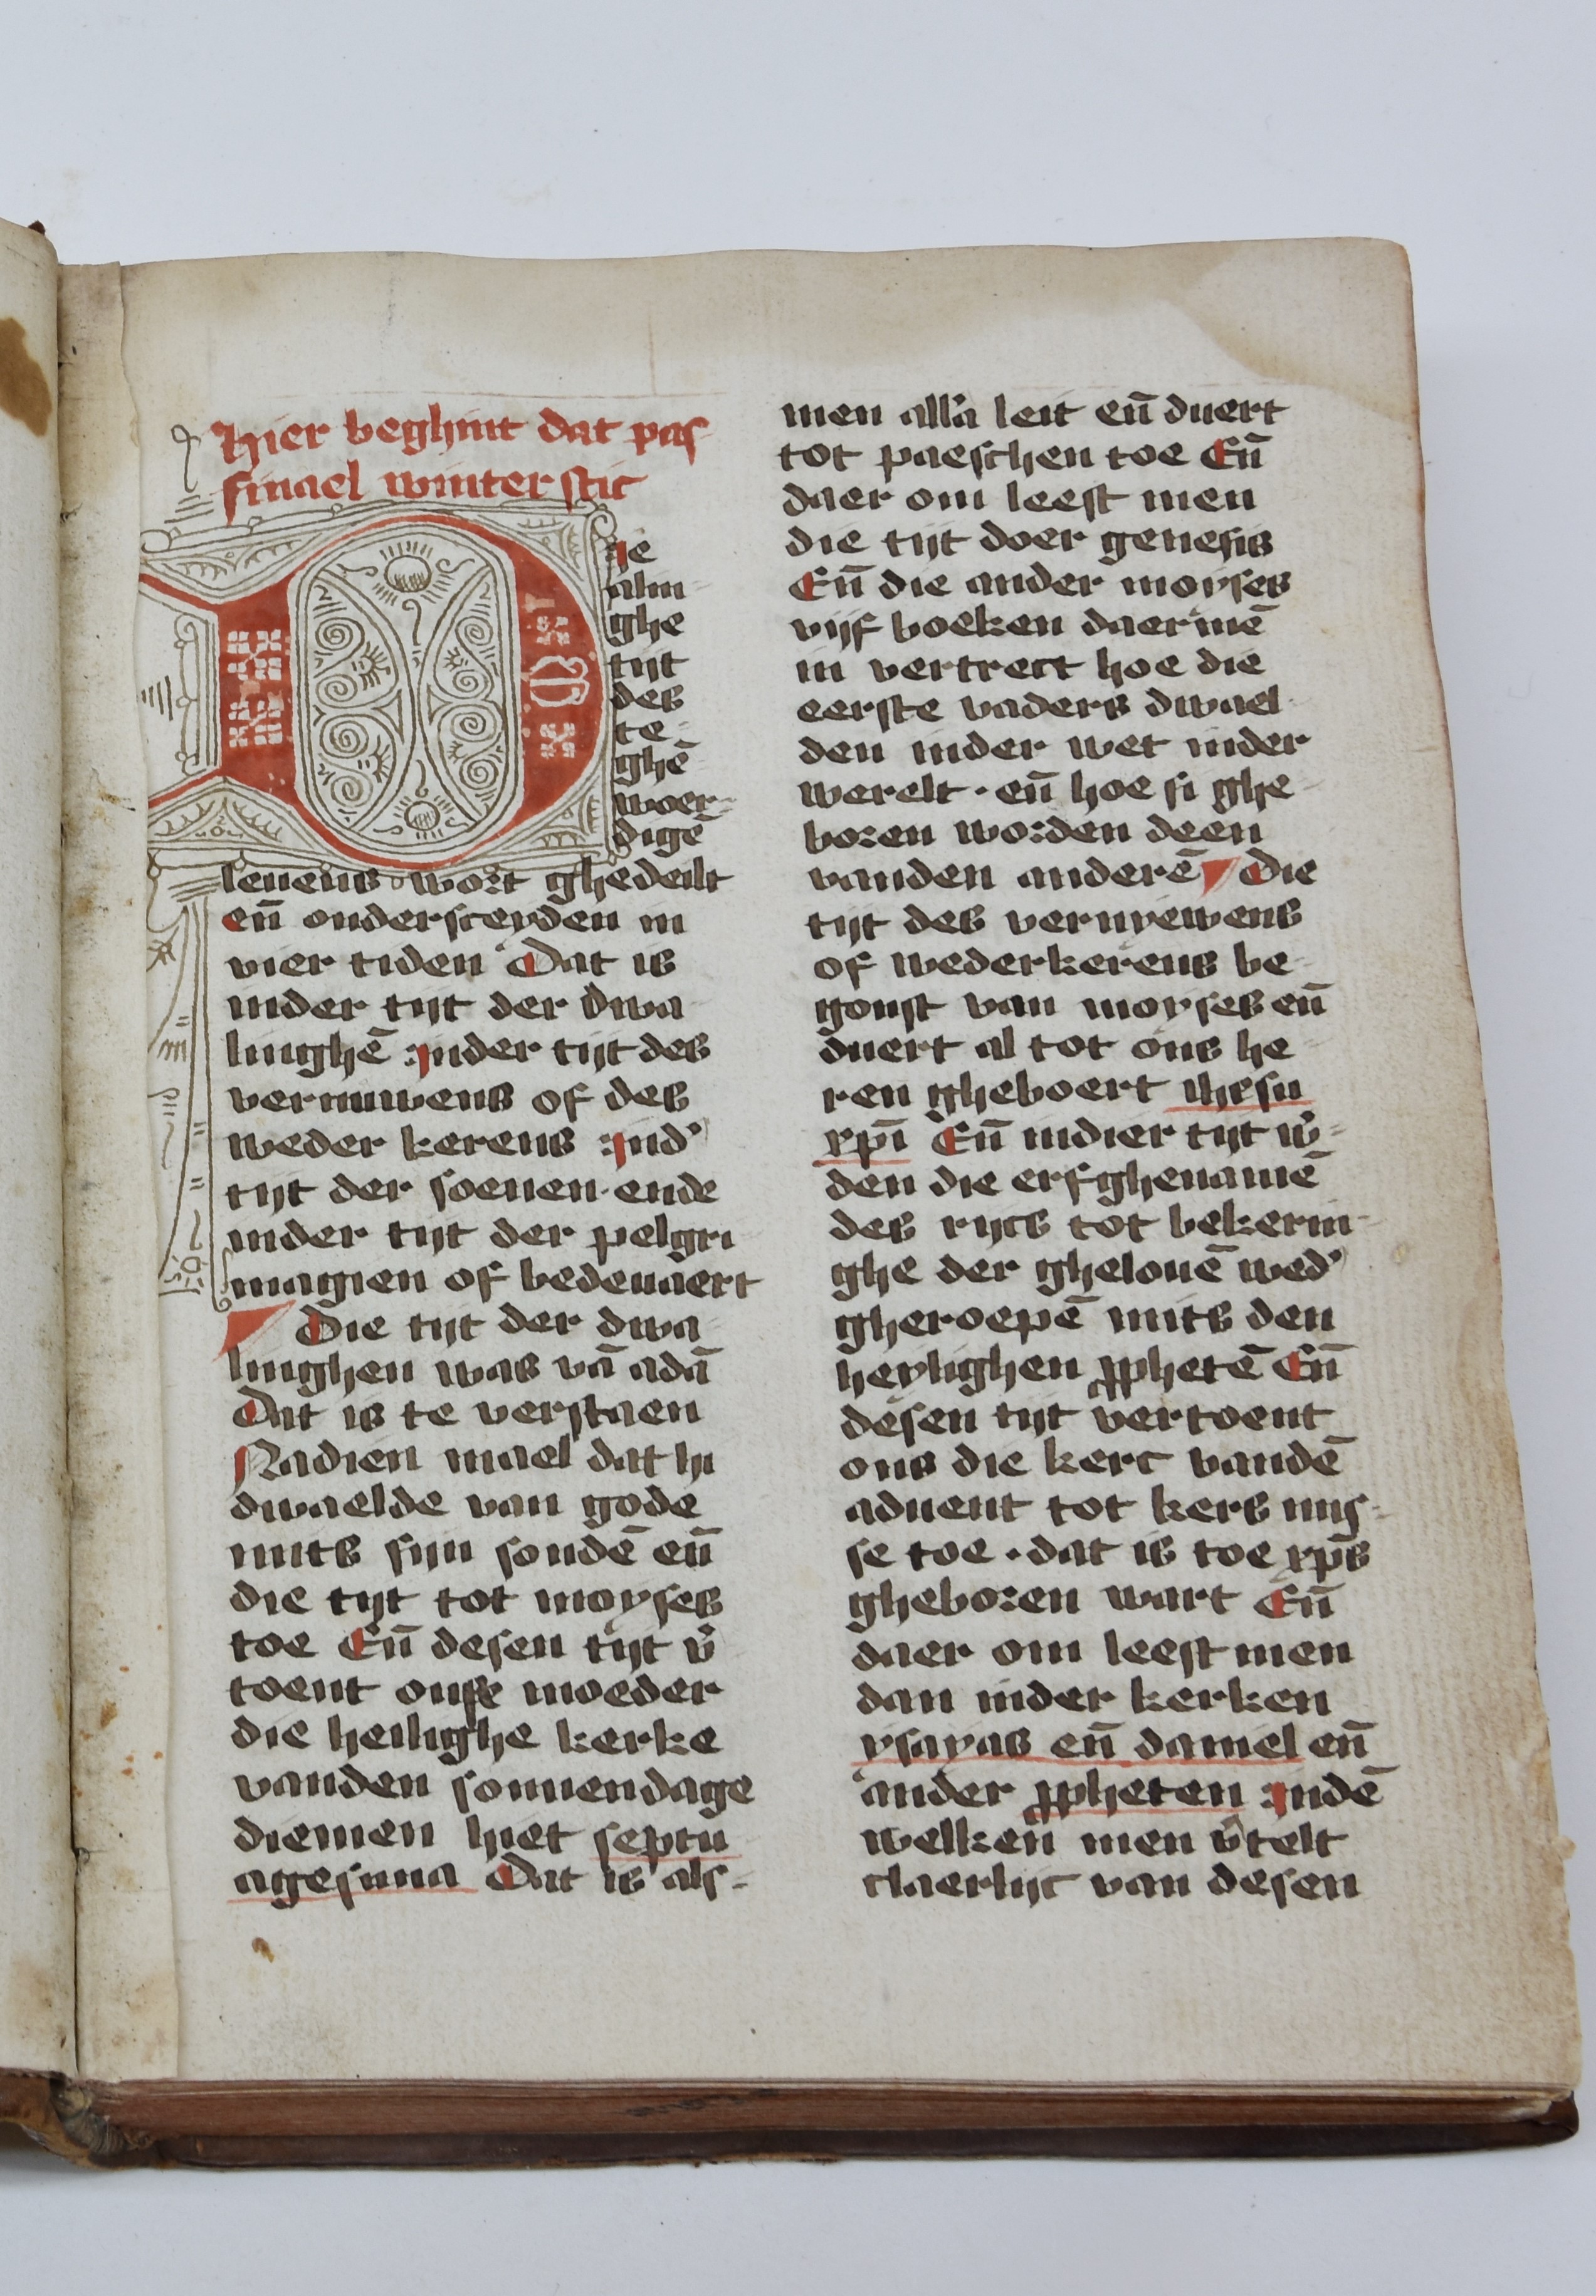 Hier beghint dat pas
sinael winter stic
Die
alm
ghe
tijt
des
te
ghē
woer
digē
leuens wort ghedeilt
eñ ondersceyden in
vier tiden Dat is
inder tijt der dwa
linghē Inder tijt des
vernuwens of des
weder kerens Ind'
tijt der soenen ende
inder tijt der pelgri
magien of bedeuaert
Die tijt der dwa
linghen was vā adā
Dat is te verstaen
Nadien mael dat hi
dwaelde van gode
mits sijn sondē eñ
die tijt tot moyses
toe Eñ desen tijt v'
toent onse moeder
die heilighe kerke
vanden sonnendage
diemen hiet septu
agesima Dat is als-
men all'a leit eñ duert
tot paeschen toe Eñ
daer om leest men
die tijt doer genesis
Eñ die ander moyses
vijf boeken daer mē
in vertrect hoe die
eerste vaders dwael
den inder wet inder
werelt · eñ hoe si ghe
boren worden deen
vanden anderē Die
tijt des vernyewens
of wederkerens be
gonst van moyses eñ
duert al tot ons he
ren gheboert ihesu
xpī Eñ indier tijt w'
den die erfghenamē
des rijcs tot bekerin
ghe der ghelouē wed'
gheroepē mits den
heylighen ꝓphetē Eñ
desen tijt vertoent
ons die kerc vandē
aduent tot kers mis
se toe · dat is toe xp̄s
gheboren wart Eñ
daer om leest men
dan inder kerken
ysayas eñ daniel eñ
ander ꝓpheten Indē
welken men v'telt
claerlijc van desen